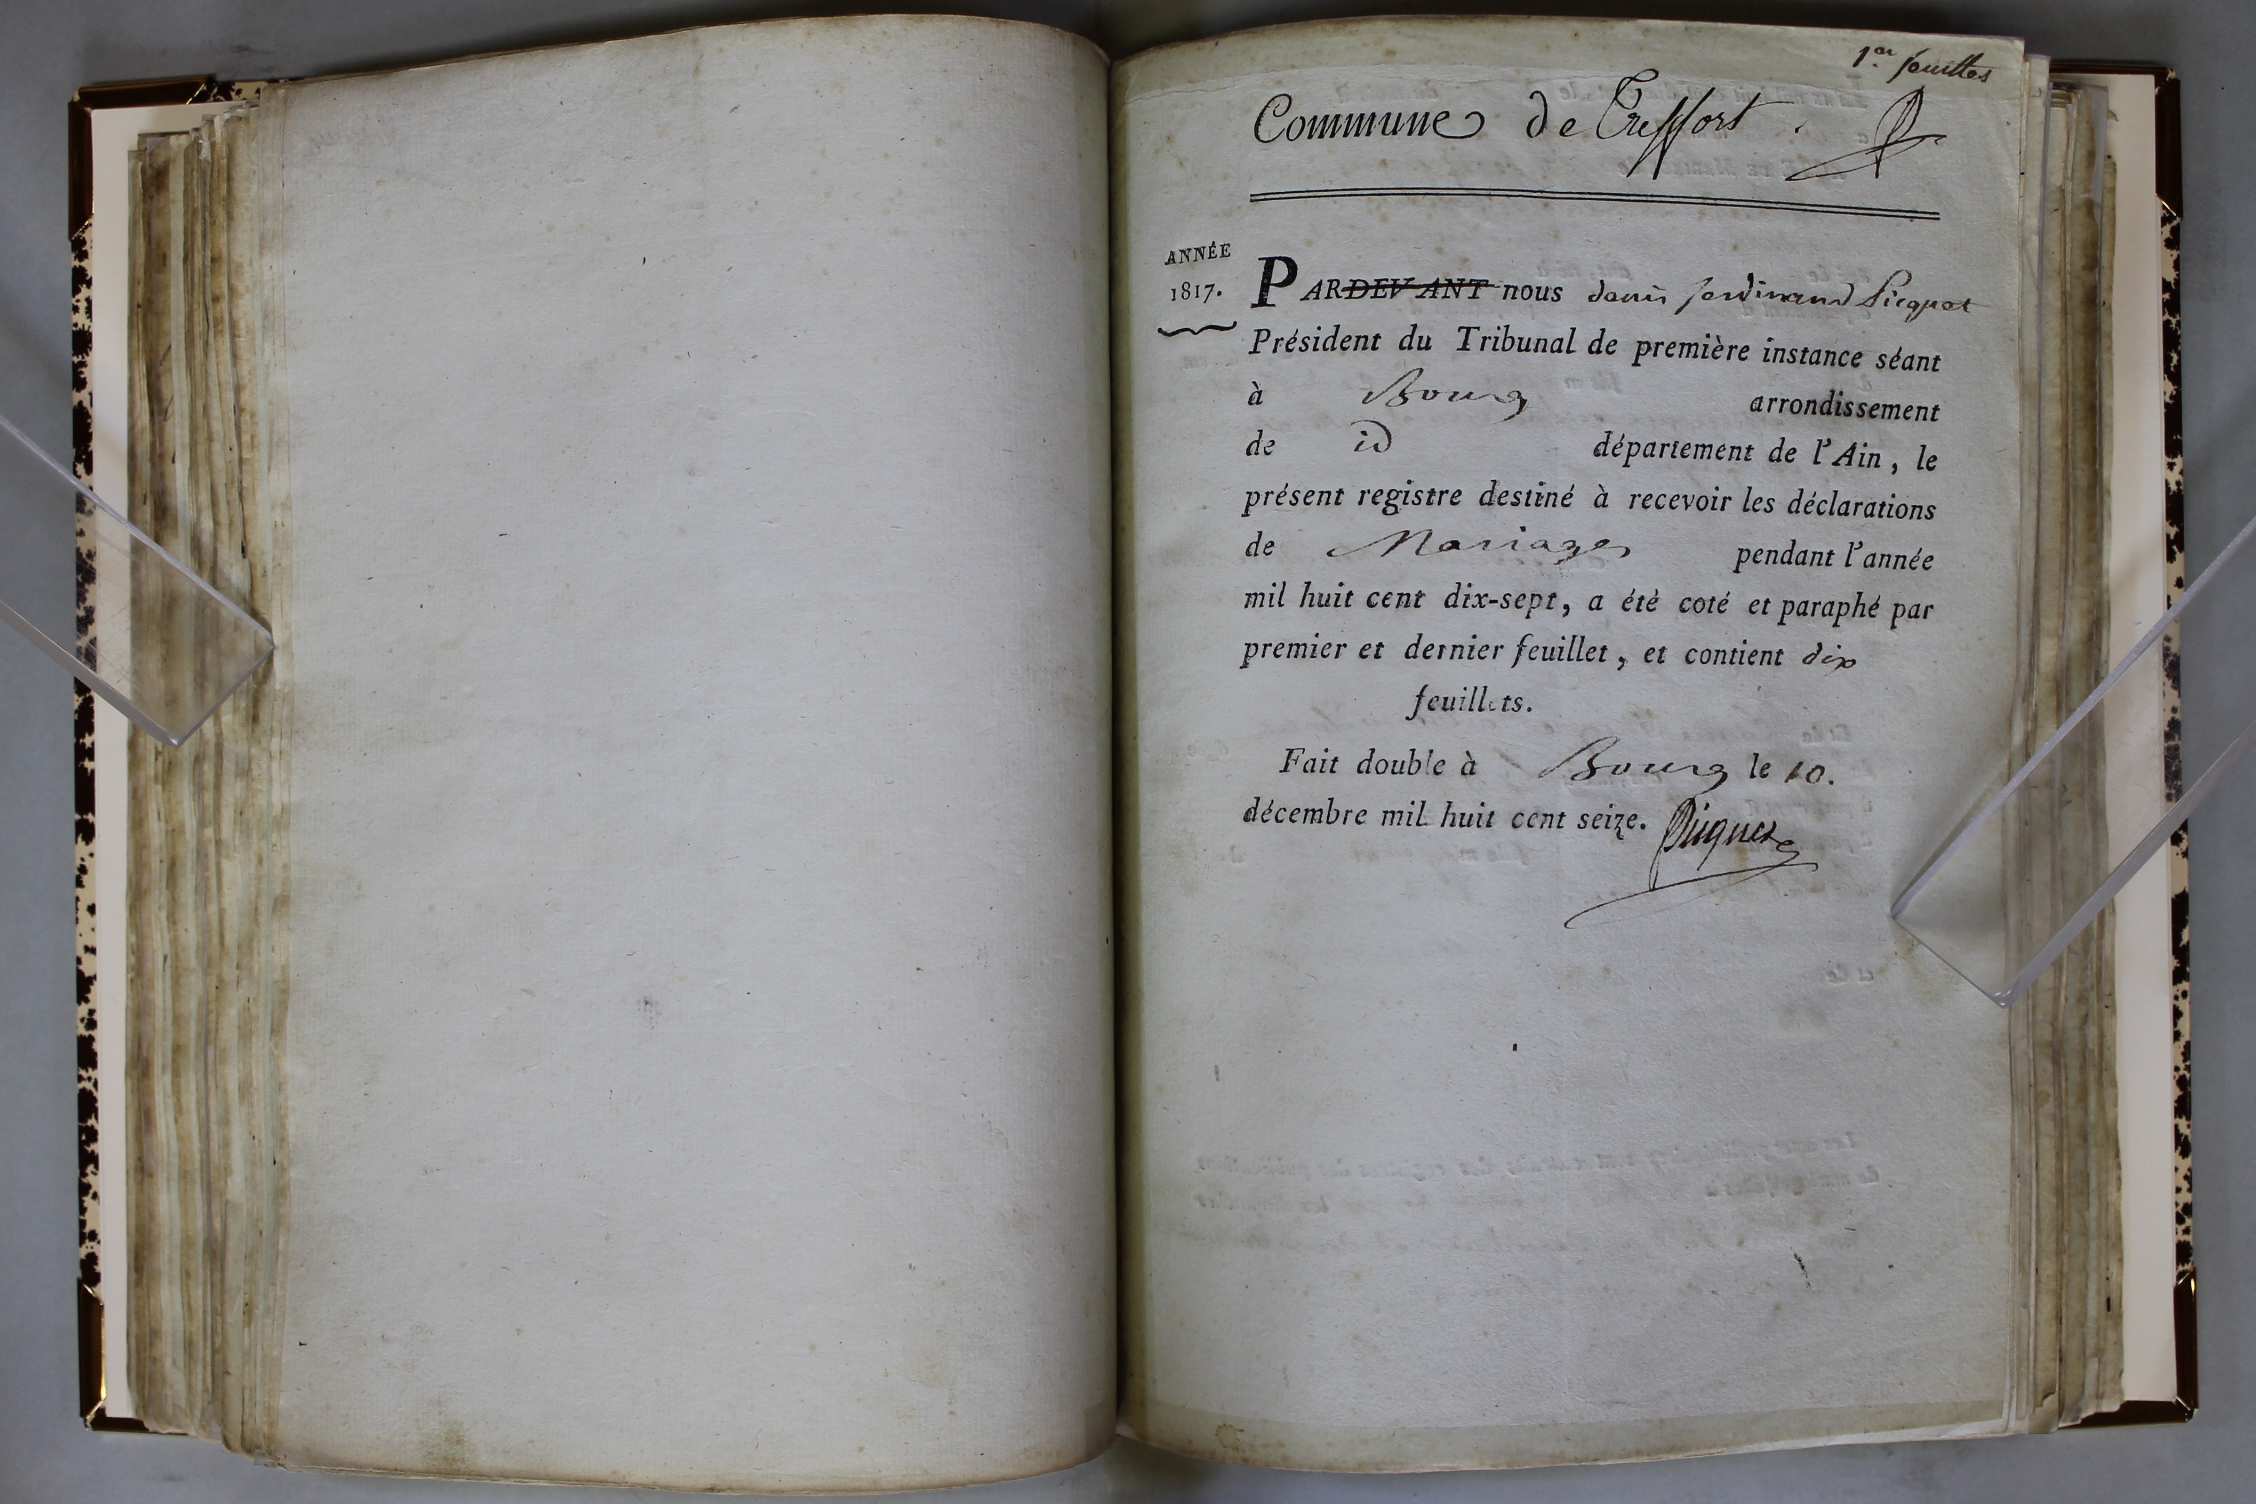 1er feuillet
Commune de Treffort.
ANNÉE
1817.
PARDEVANT nous denis ferdinand Picquet
Président du Tribunal de première instance séant
à Bourg arrondissement
de id département de l'Ain, le
présent registre destiné à recevoir les déclarations
de Mariages pendant l'année
mil huit cent dix-sept, a été coté et paraphé par
premier et dernier feuillet, et contient dix
feuillets.
Fait double à Bourg le 10.
décembre mil huit cent seize. Picquet